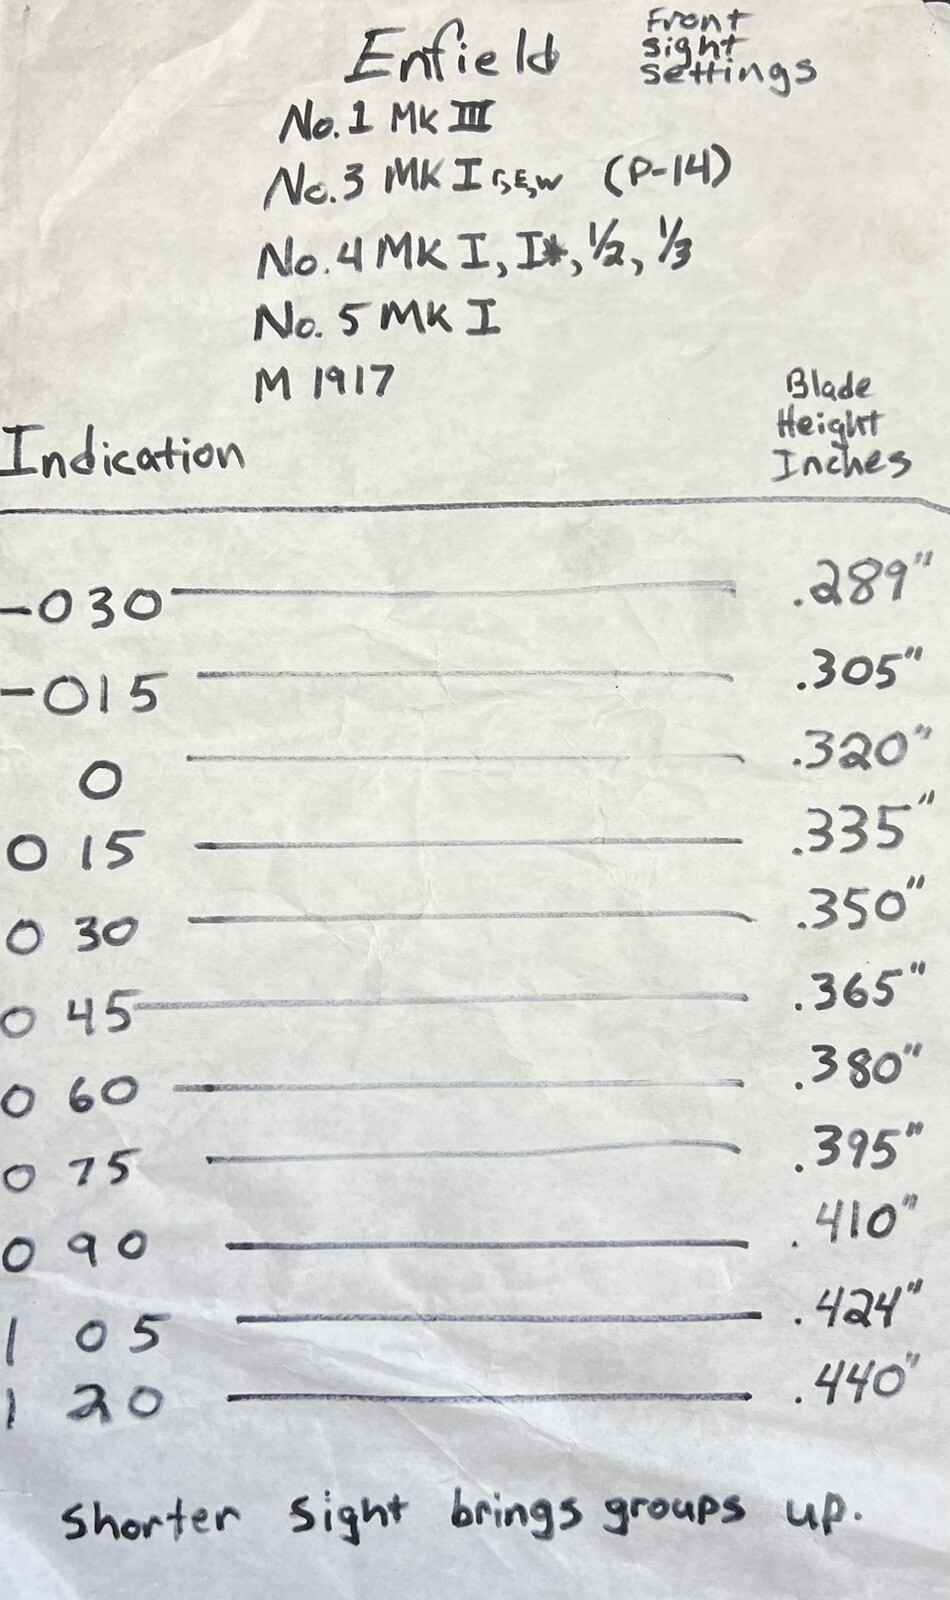 Enfield
Front
sight
settings
No. 1 MK III
No. 3 MK I r,E,W (P-14)
No. 4 MK I, I*, 1/2, 1/3
No. 5 MK I
M 1917
Indication
Blade
Height
Inches
-030 .289"
-015 .305"
0 .320"
0 15 .335"
0 30 .350"
0 45 .365"
0 60 .380"
0 75 .395"
0 90 .410"
1 05 .424"
1 20 .440"
Shorter sight brings groups up.